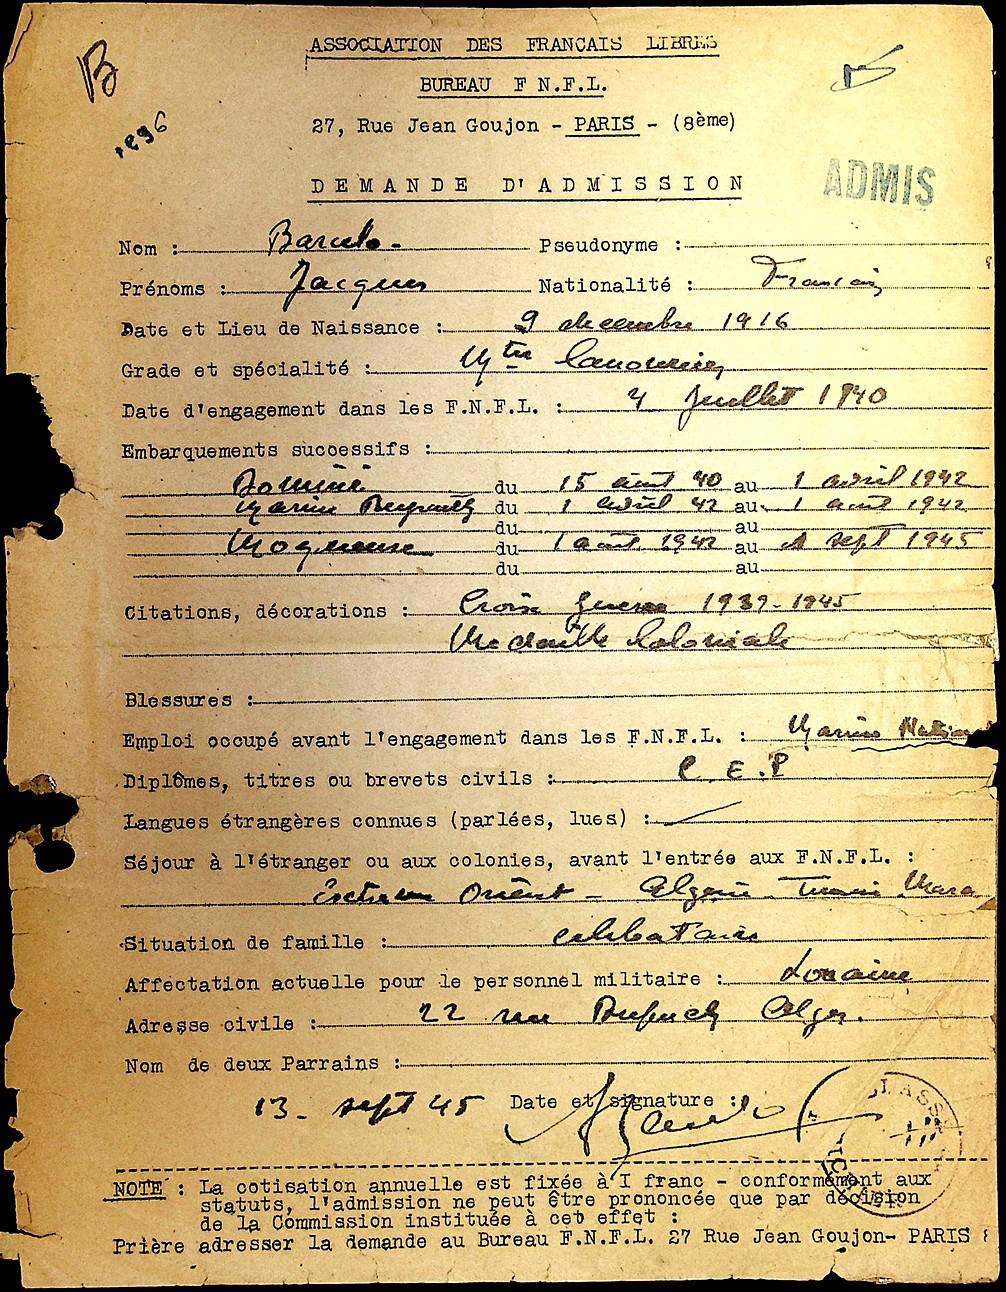 B
ASSOCIATION DES FRANCAIS LIBRES
BUREAU F N.F.L.
27, Rue Jean Goujon - PARIS - (8ème)
DEMANDE D'ADMISSION
ADMIS
Nom : Barcelo - Pseudonyme :
Prénoms : Jacques Nationalité : Français
Date et Lieu de Naissance : 9 decembre 1916
Grade et spécialité : Mtre Canonnier
Date d'engagement dans les F.N.F.L. : 4 Juillet 1940
Embarquements successifs :
Dominé du 15 août 40 au 1 avril 1942
Marine Beyrouth du 1 avril 42 au 1 août 1942
du au
Moqueuse du 1 août 1942 au sept 1945
du au
Citations, décorations : Croix Guerre 1939-1945
Medaille Coloniale
Blessures :
Emploi occupé avant l'engagement dans les F.N.F.L. : Marine
Diplômes, titres ou brevets civils : C.E.P
Langues étrangères connues (parlées, lues) :
Séjour à l'étranger ou aux colonies, avant l'entrée aux F.N.F.L. :
Extreme Orient - Algerie Tunisie Maro
Situation de famille : celibataire
Affectation actuelle pour le personnel militaire : Lorraine
Adresse civile : 22 rue Dupuch Alger.
Nom de deux Parrains :
13 - sept 45 Date et signature :
NOTE : La cotisation annuelle est fixée à I franc - conformément aux
statuts, l'admission ne peut être prononcée que par décision
de la Commission instituée à cet effet :
Prière adresser la demande au Bureau F.N.F.L. 27 Rue Jean Goujon- PARIS 8